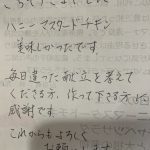 ハニーマスタードチキン
美味しかったです
毎日違った献立を考えて
くださる方、作って下さる方に
感謝です
これからもよろしく
お願いします